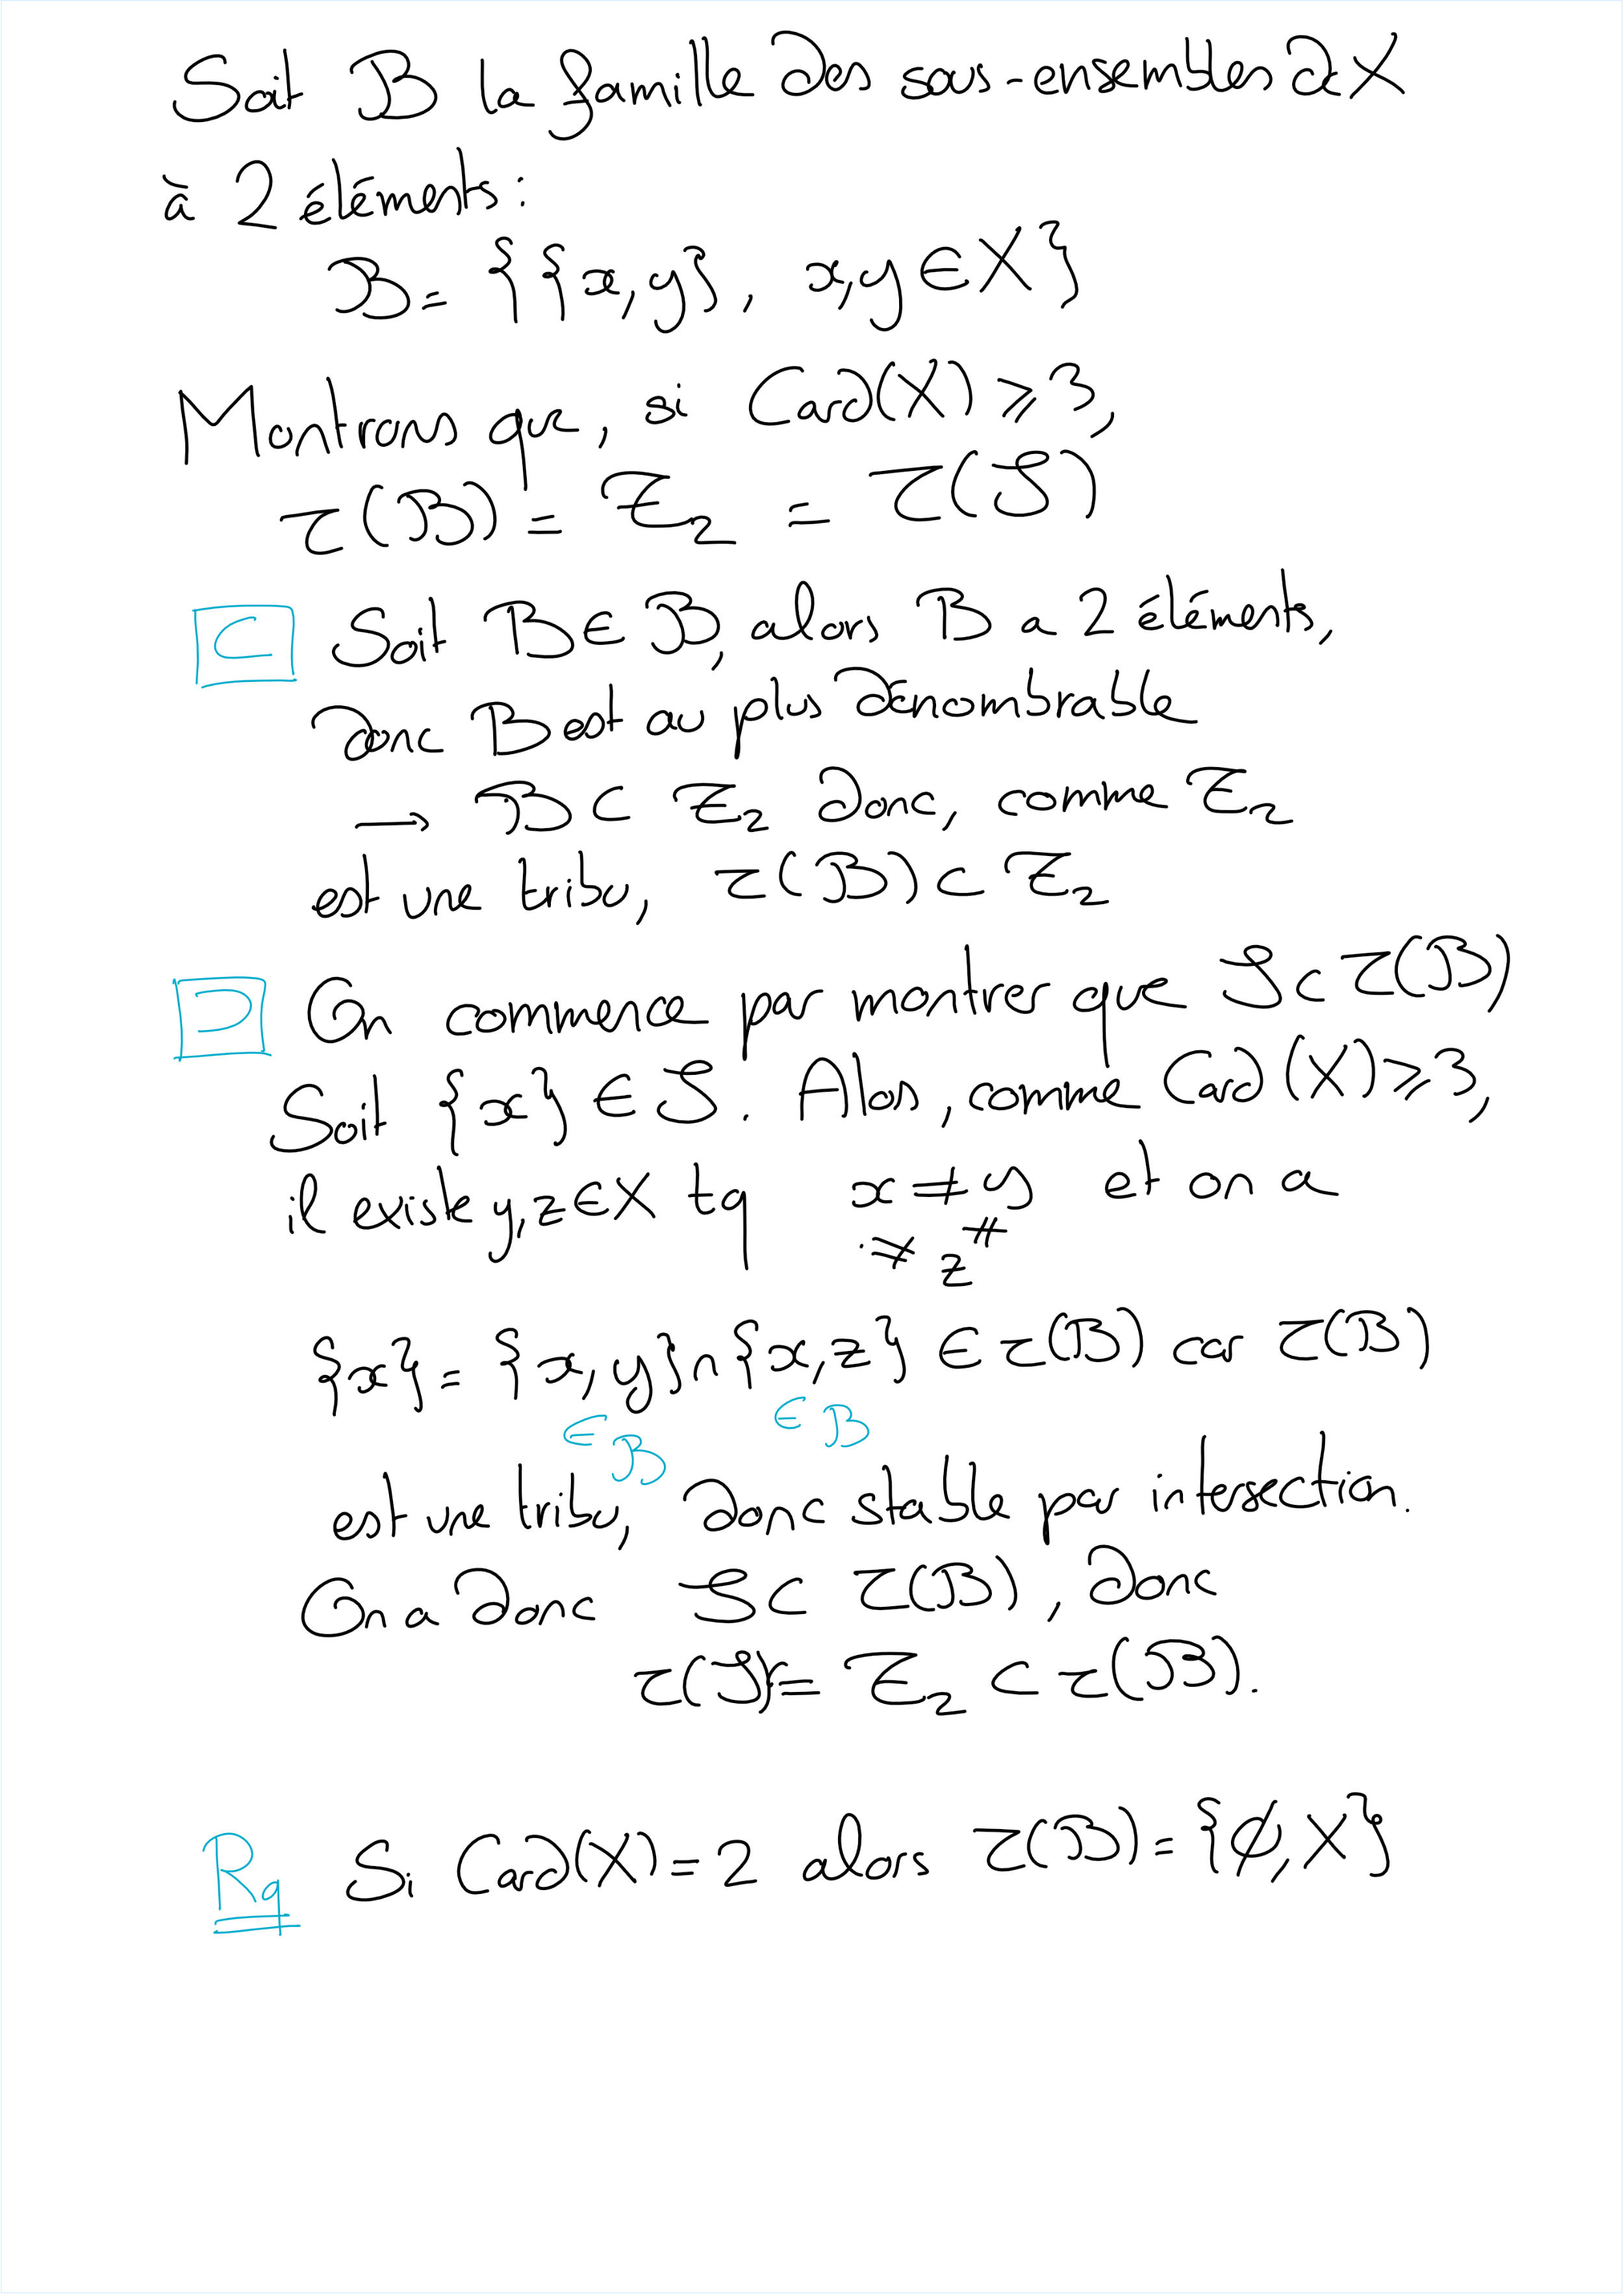 Soit B la famille des sous-ensembles de X
à 2 éléments:
B = {{x,y}, x,y ∈ X}
Montrons que, si Card(X) ⩾ 3,
τ(B) = Ƶ₂ = τ(S)
⊂ Soit B ∈ B, alors B a 2 éléments,
donc B est au plus dénombrable
→ B ⊂ Ƶ₂ donc, comme Ƶ₂
est une tribu, τ(B) ⊂ Ƶ₂
⊃ On commence par montrer que S ⊂ τ(B)
Soit {x} ∈ S. Alors, comme Card(X) ⩾ 3,
il existe y, z ∈ X tq x ≠ y et on a
≠ z ≠
{x} = {x,y} ∩ {x,z} ∈ τ(B) car τ(B)
∈ B ∈ B
est une tribu, donc stable par intersection.
On a donc S ⊂ τ(B), donc
τ(S) = Ƶ₂ ⊂ τ(B).
Rq Si Card(X) = 2 alors τ(B) = {∅, X}